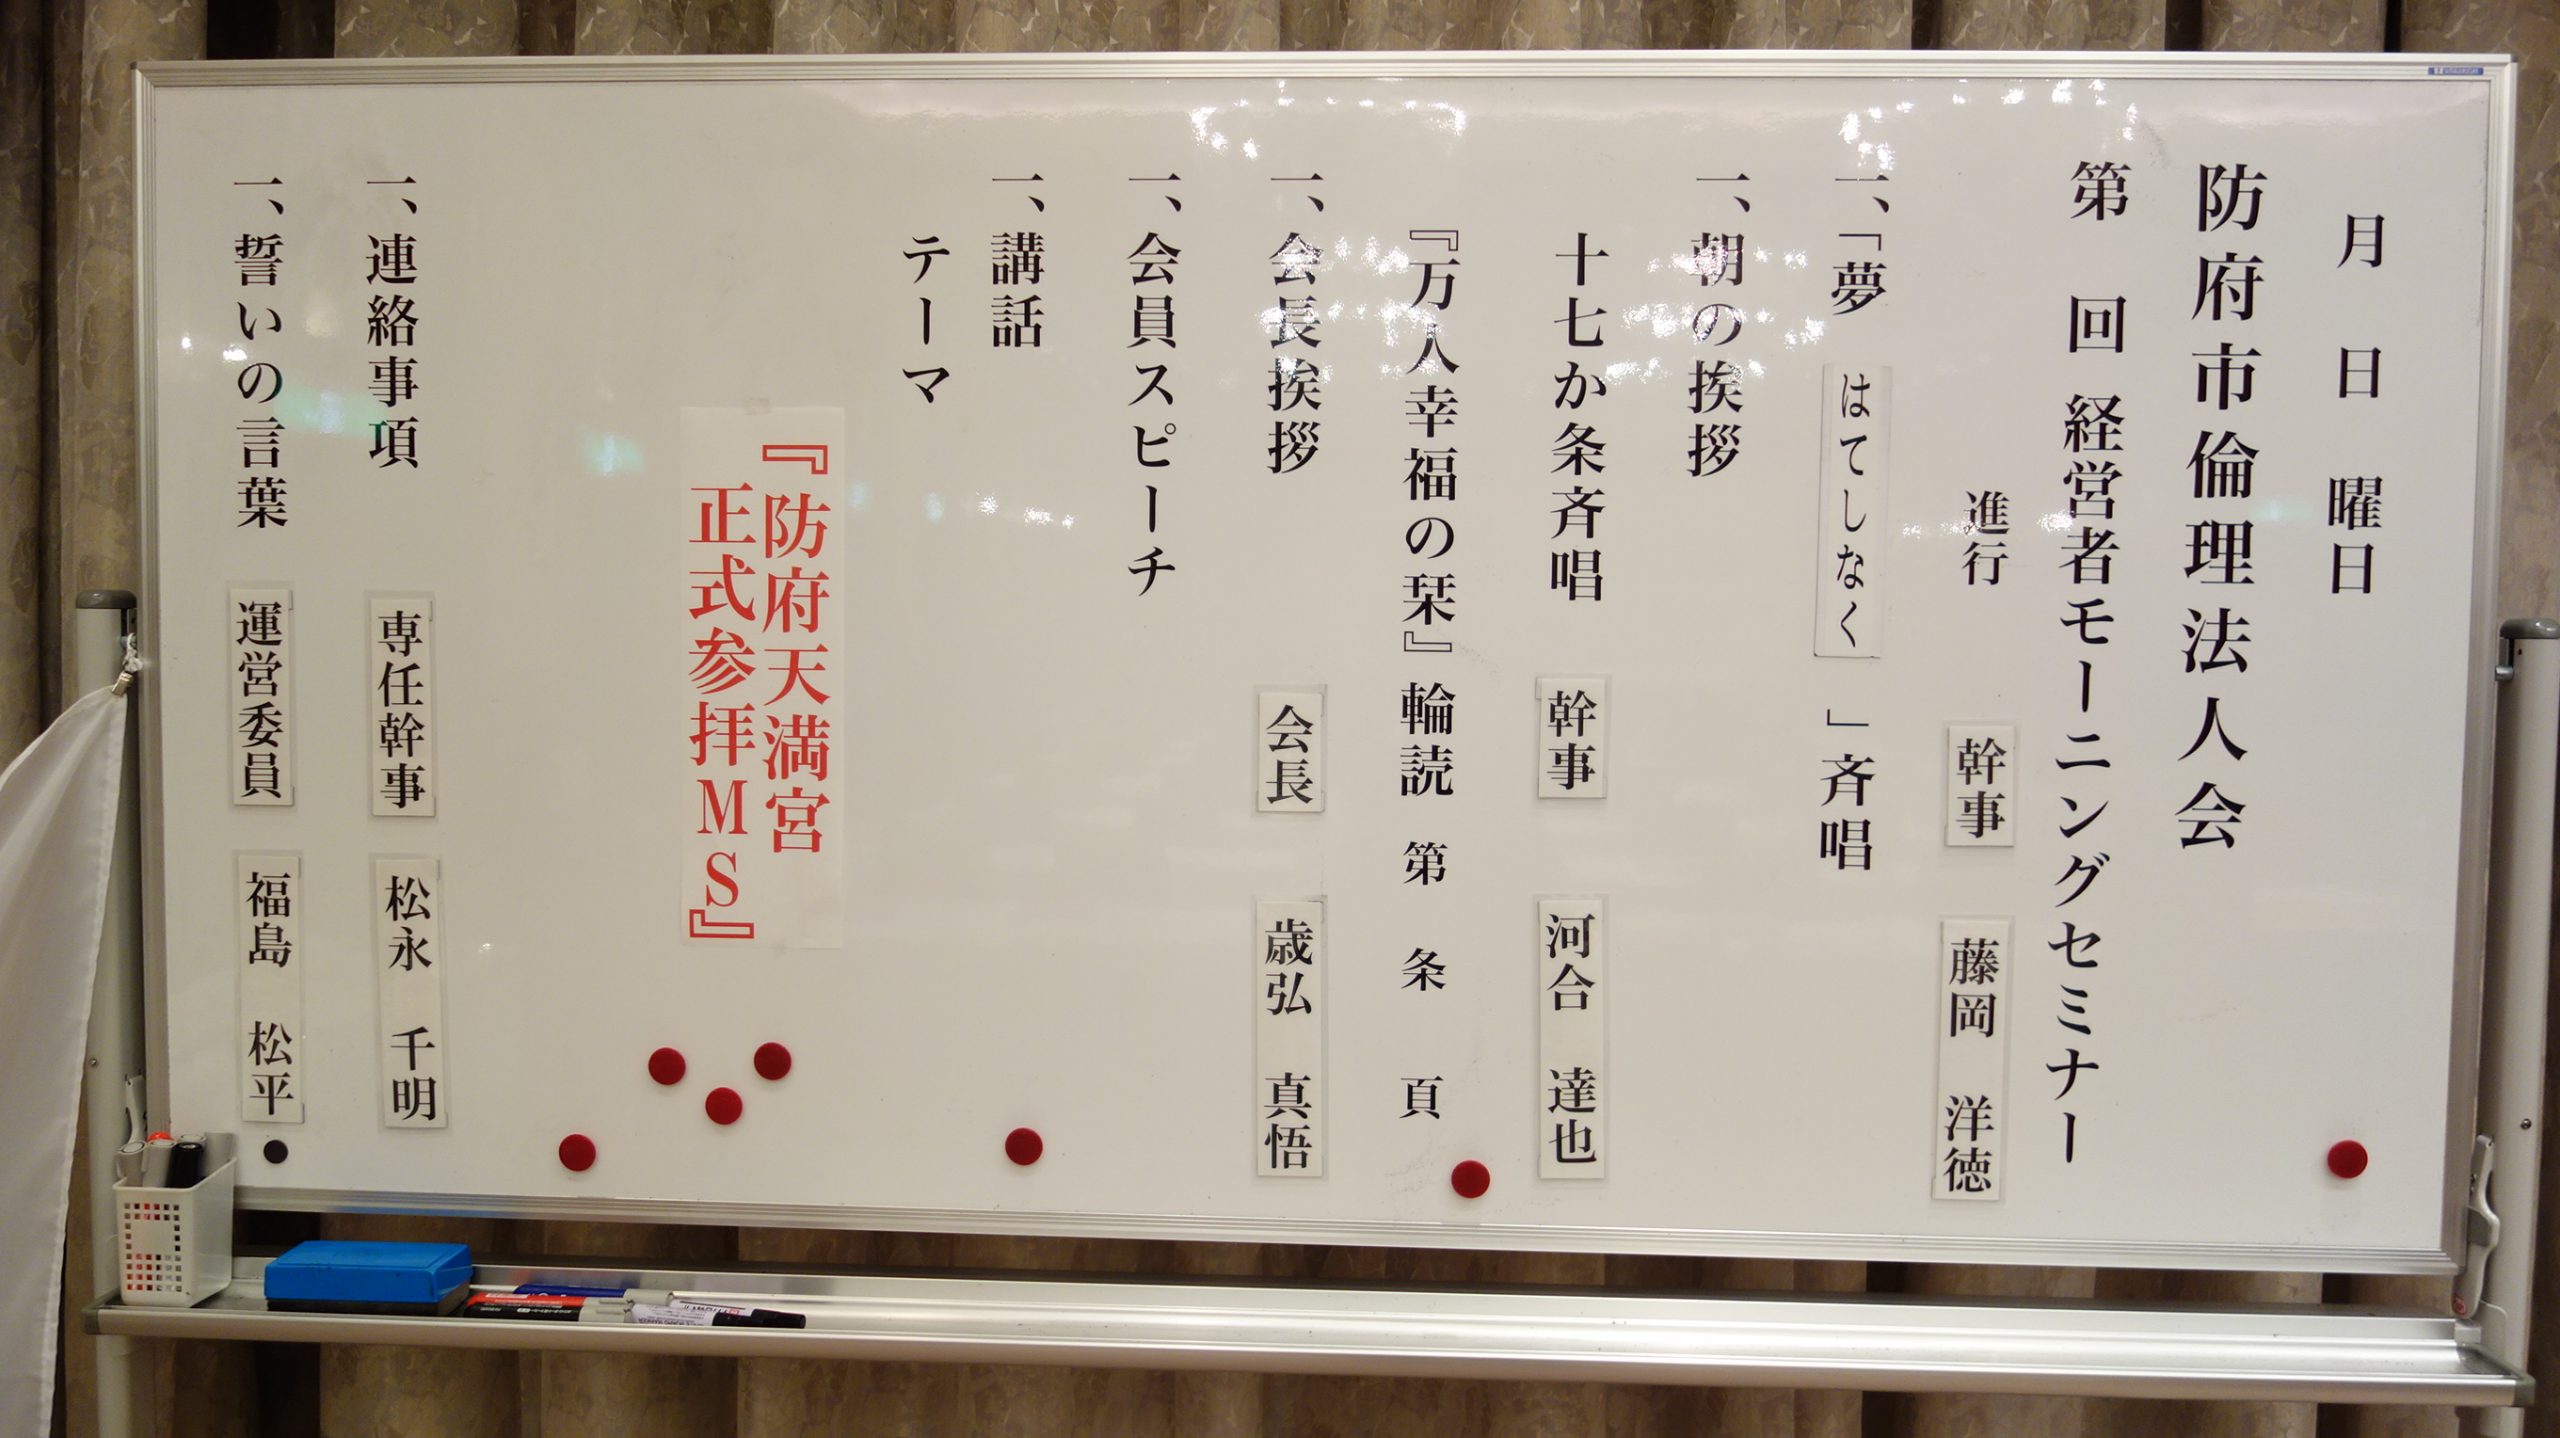 月　日　曜日
防府市倫理法人会
第　回　経営者モーニングセミナー
進行　幹事　藤岡　洋徳
一、「夢　はてしなく　」斉唱
一、朝の挨拶
十七か条斉唱　幹事　河合　達也
『万人幸福の栞』輪読　第　条　頁
一、会長挨拶　会長　歳弘　真悟
一、会員スピーチ
一、講話
テーマ
『防府天満宮
正式参拝ＭＳ』
一、連絡事項　専任幹事　松永　千明
一、誓いの言葉　運営委員　福島　松平